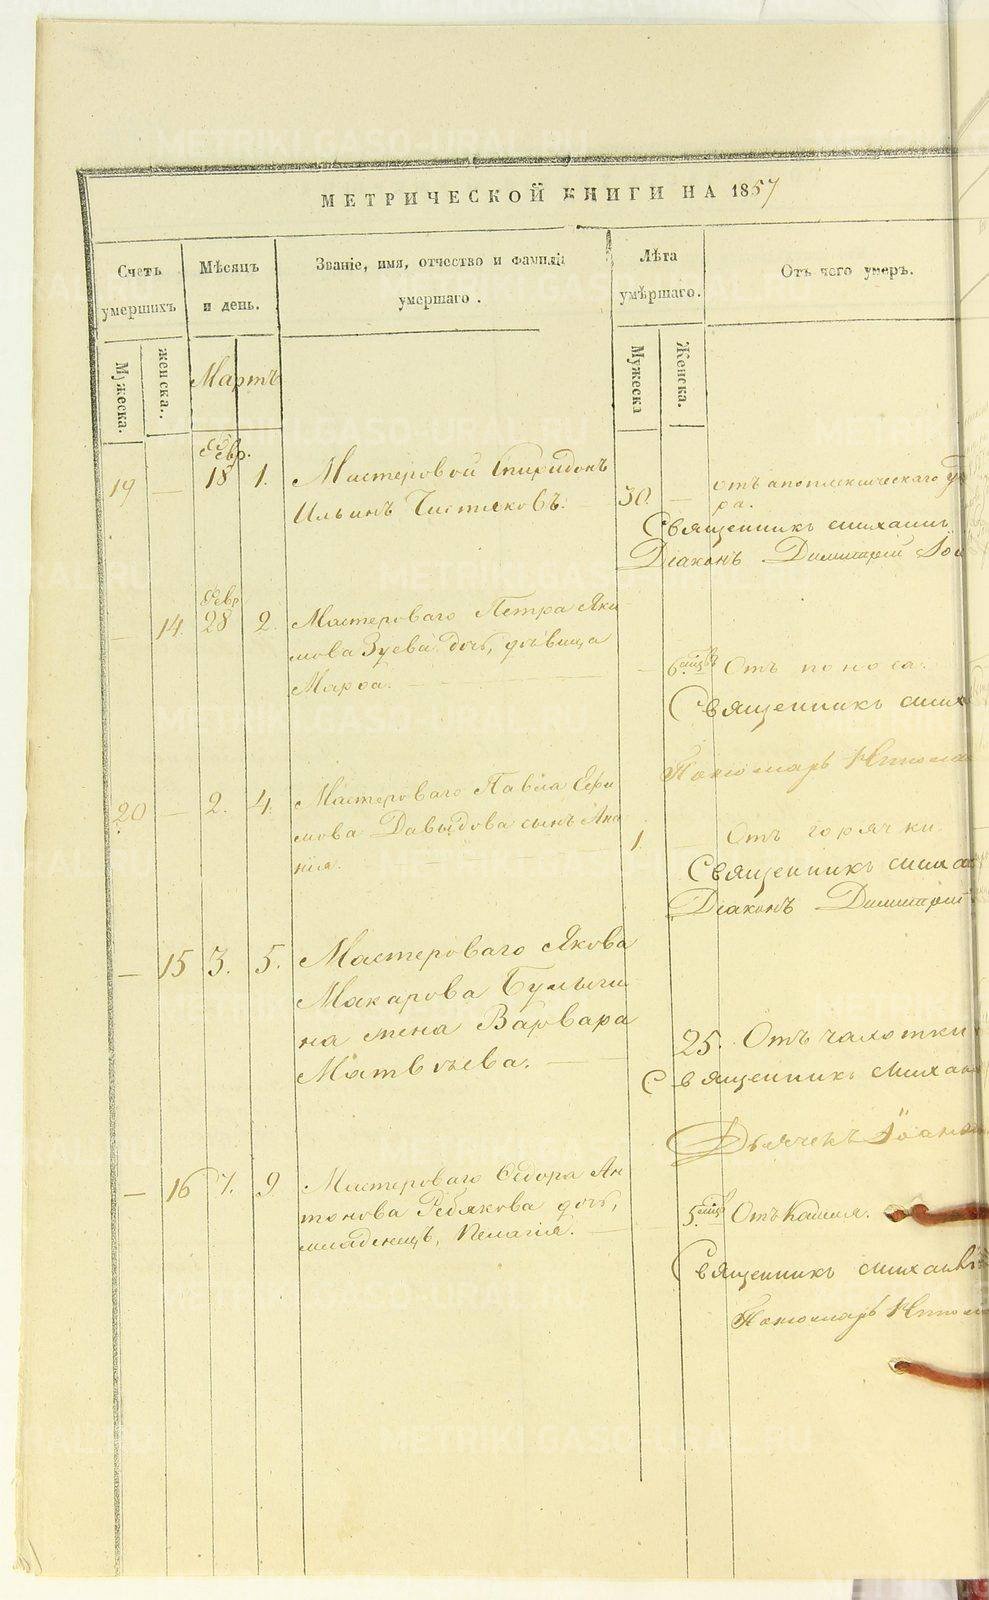 МЕТРИЧЕСКОЙ КНИГИ НА 1857
Счетъ умершихъ
Мѣсяцъ и день.
Званіе, имя, отчество и фамилі умершаго.
Лѣта умѣршаго.
Отъ чего умеръ.
Мужеска.
женска.
Мартъ
Мужеска
Женска.
Февр.
19 — 18 1. Мастеровой Спиридонъ
Ильинъ Чистяковъ.
30. — отъ апоплексическаго уда
ра.
Священникъ Михаилъ
Діаконъ Димитрій Іоа
Февр
— 14. 28 2. Мастероваго Петра Яки
мова Зуева дочь, дѣвица
Марѳа.
— 6 мцѣвъ Отъ поноса.
Священникъ Мих
Пономарь
20 — 2. 4. Мастероваго Павла Ефи
мова Давыдова сынъ Ана
нія.
1. Отъ горячки.
Священникъ Миха
Діаконъ Димитрій
— 15 3. 5. Мастероваго Якова
Макарова Булыги
на жена Варвара
Матвѣева.
25. Отъ чахотки
Священникъ Михаи
Дьячекъ Іоанн
— 16 7. 9 Мастероваго Ѳедора Ан
тонова Ребякова дочь,
младенецъ, Пелагія.
5 мцѣв Отъ Кашля.
Священникъ Михаилъ
Пономарь